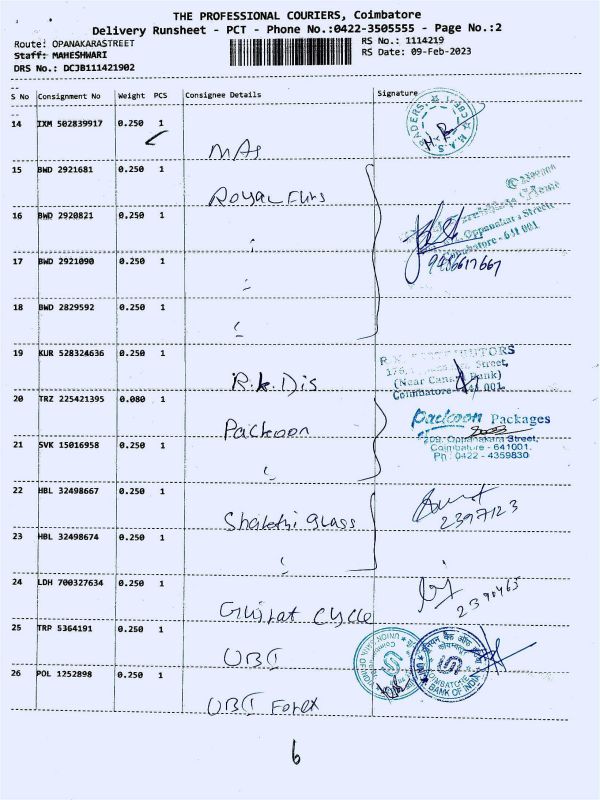 THE PROFESSIONAL COURIERS, Coimbatore
Delivery Runsheet - PCT - Phone No.:0422-3505555 - Page No.:2
Route: OPANAKARASTREET
RS No.: 1114219
Staff: MAHESHWARI
RS Date: 09-Feb-2023
DRS No.: DCJB111421902
S No Consignment No Weight PCS Consignee Details Signature
14 IXM 502839917 0.250 1
MAS
15 BWD 2921681 0.250 1
Royal Furs
16 BWD 2920821 0.250 1
17 BWD 2921090 0.250 1
Oppanakara Street
641 001
9486617667
18 BWD 2829592 0.250 1
19 KUR 528324636 0.250 1
R.K.Dis
Street,
(Near Canara Bank)
Coimbatore 641 001.
20 TRZ 225421395 0.080 1
Packoon
Packoon Packages
209, Oppanakara Street,
Coimbature - 641001.
Ph : 0422 - 4359830
21 SVK 15016958 0.250 1
22 HBL 32498667 0.250 1
Shakthi Glass
2397123
23 HBL 32498674 0.250 1
24 LDH 700327634 0.250 1
Gujrat Cycle
2390465
25 TRP 5364191 0.250 1
UBI
UNION BANK OF INDIA
26 POL 1252898 0.250 1
UBI Forex
6